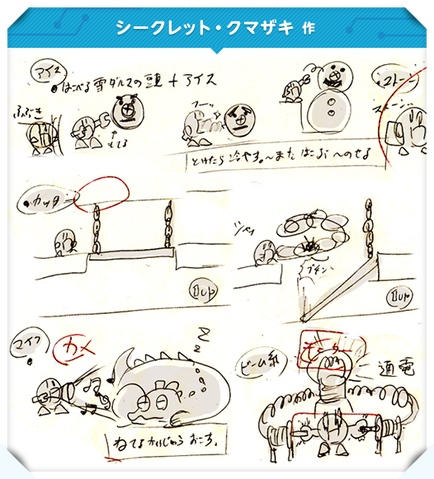 シークレット・クマザキ 作
アイス
はこべる雪ダルマの頭+アイス
ふぶき
フーッ
ストーン
ストーン
とけたら冷やす。〜またはこぶ〜のせる
カッタ
シャッ
プチン
1up
1up
マイク
カメ
Z
z
z
ねてるかいじゅうおこす。
ビーム系
モーター
通電